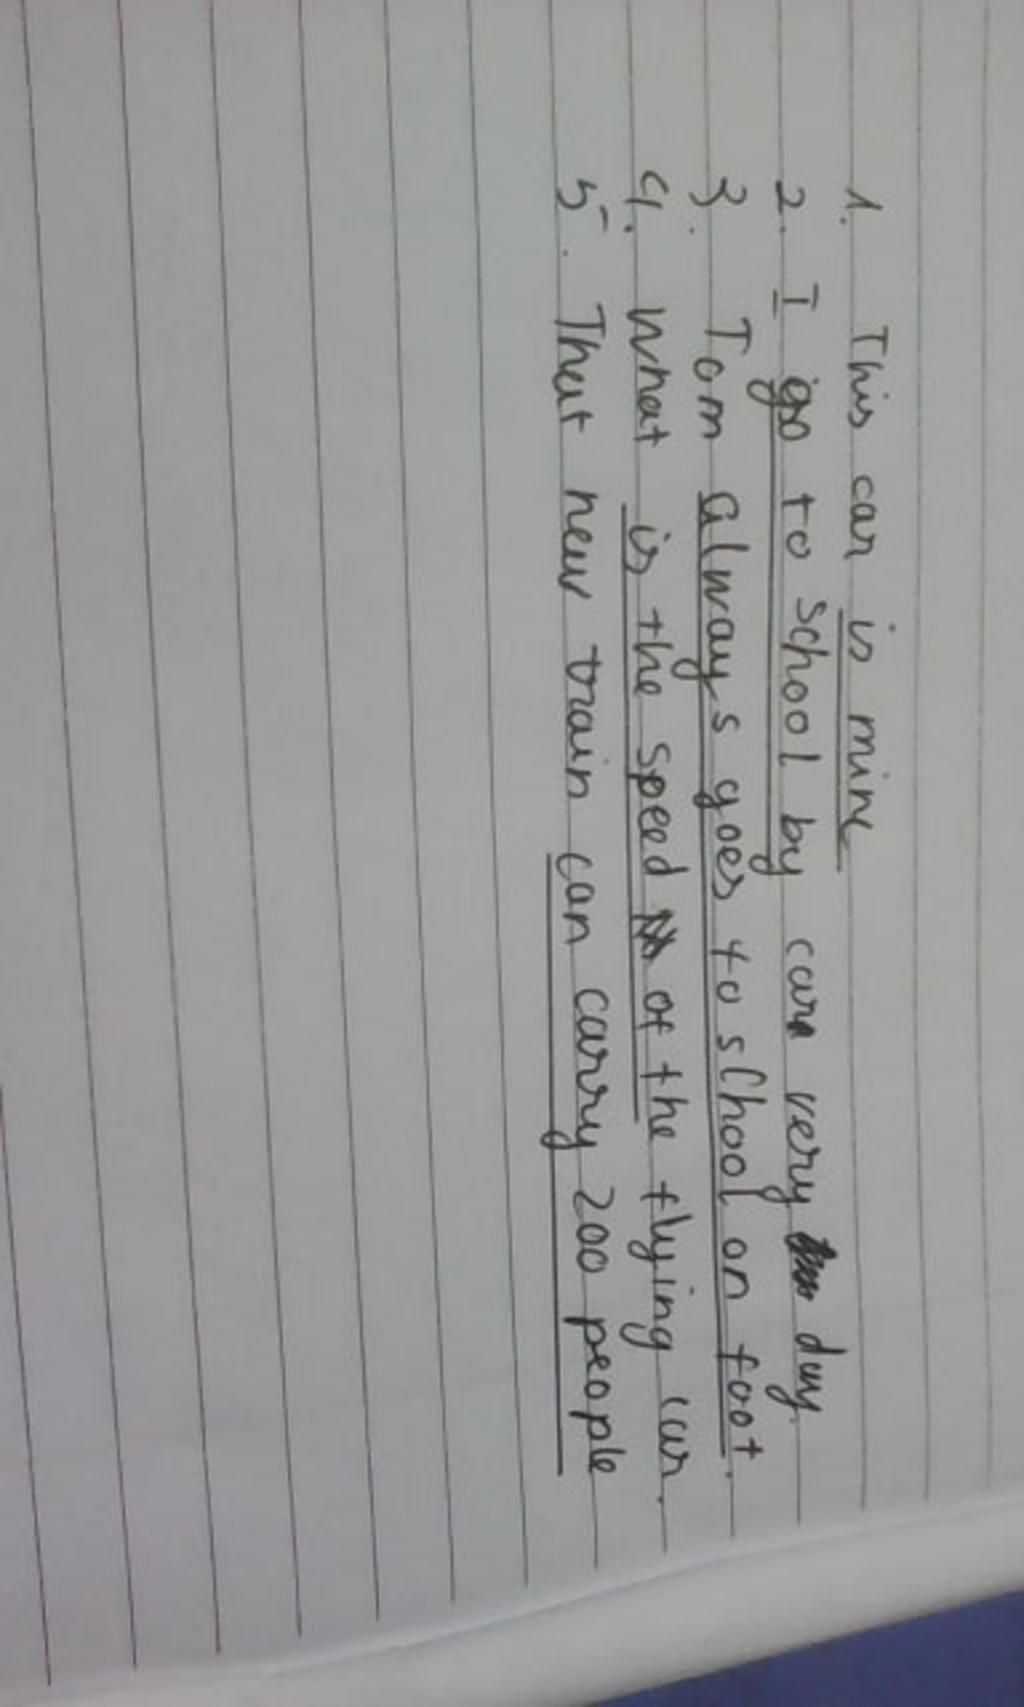 1. This car is mine
2. I go to school by car very day
3. Tom always goes to school on foot.
4. What is the speed of the flying car.
5. That new train can carry 200 people